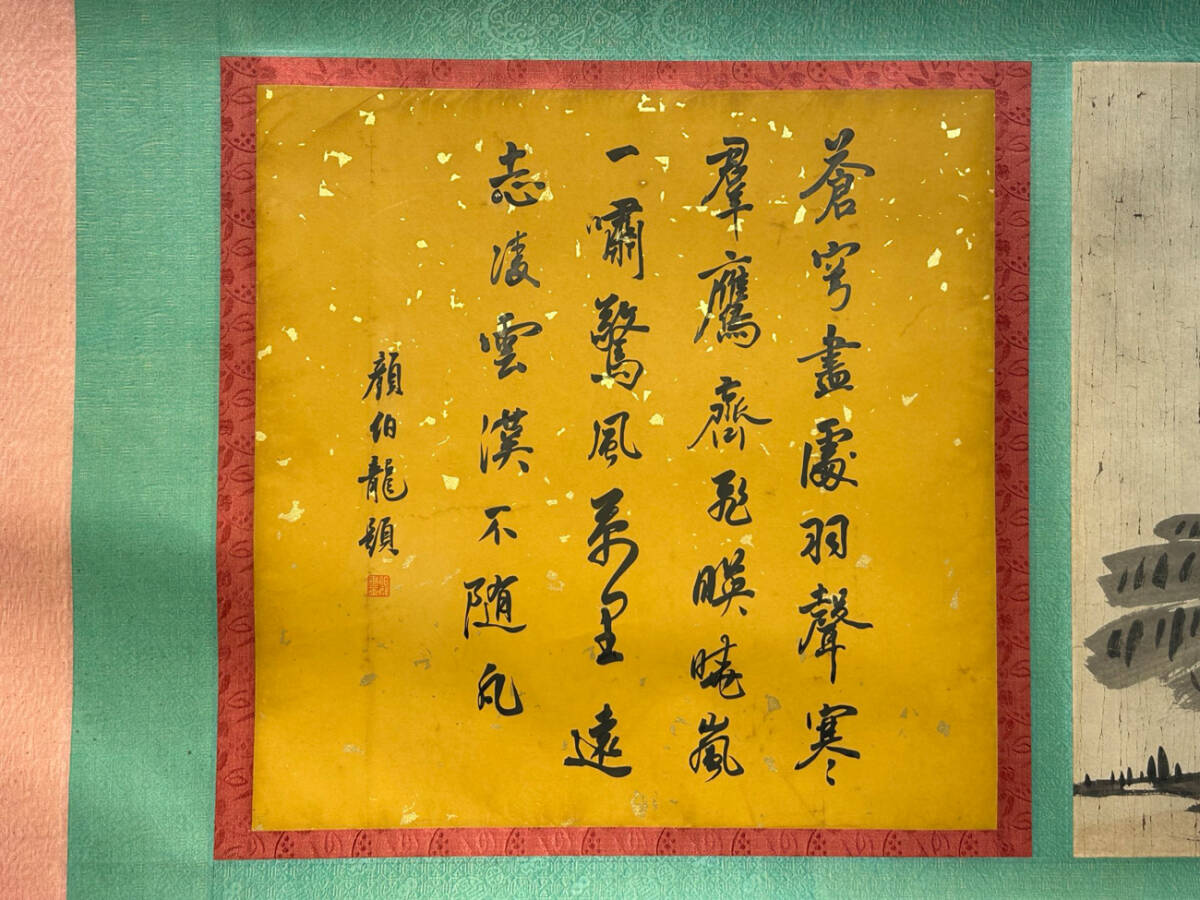 蒼穹盡處羽聲寒
羣鷹齊飛暎曉嵐
一嘯驚風萬里遠
志凌雲漢不随凡
顏伯龍題